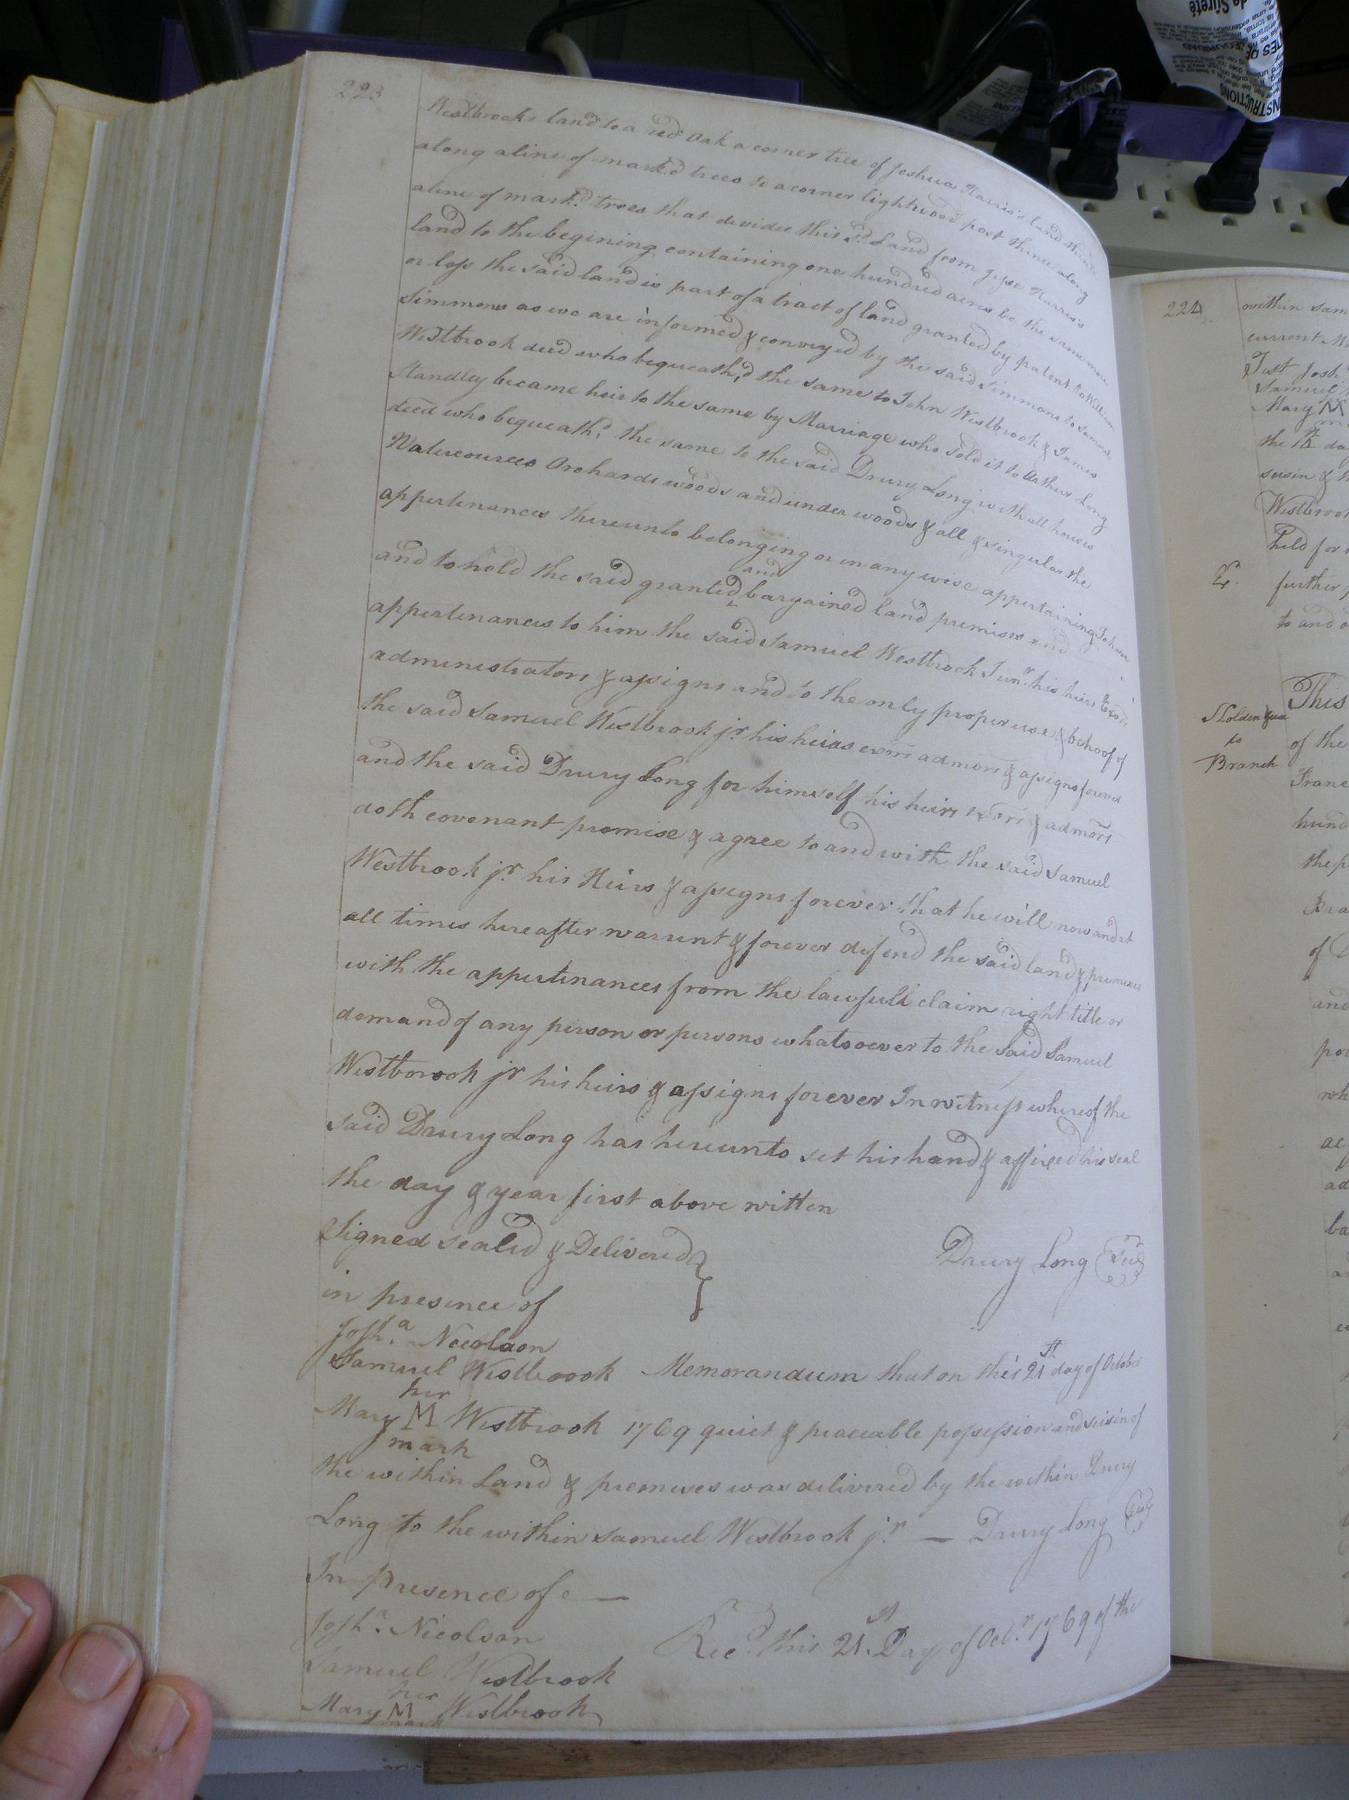 223
Westbrooks land to a red Oak a corner tree of Joshua Harris's land thence
along a line of markd trees to a corner lightwood post thence along
a line of markd. trees that divides this sd. Land from Jesse Harris's
land to the begining containing one hundred acres be the same more
or less the said land is part of a tract of land granted by patent to William
Simmons as we are informed & conveyed by the said Simmons to Samuel
Westbrook decd who bequeath,d the same to John Westbrook & James
Standley became heir to the same by Marriage who sold it to Arthur Long
decd who bequeathd. the same to the said Drury Long with all houses
Watercources Orchards woods and under woods & all & singular the
appertinances thereunto belonging or in any wise appertaining To have
and to hold the said granted and bargained land premises and
appertinances to him the said Samuel Westbrook Junr. his heirs Exors
administrators & assigns and to the only proper use & behoof of
the said Samuel Westbrook jr. his heirs exors admors & assigns forever
and the said Drury Long for himself his heirs exors & admors
doth covenant promise & agree to and with the said Samuel
Westbrook jr. his Heirs & assigns forever that he will now and at
all times hereafter warrent & forever defend the said land & premises
with the appertinances from the lawfull claim right title or
demand of any person or persons whatsoever to the said Samuel
Westborook jr his heirs & assigns forever In witness whereof the
said Drury Long has hereunto set his hand & affixed his seal
the day & year first above witten
Signed sealed & Delivered
in presence of
Drury Long Seal
Josha. Nicolson
Samuel Westbrook Memorandum that on this 21st day of October
her
Mary M Westbrook 1769 quiet & peaceable possession and seisin of
mark
the within Land & premises was delivered by the within Drury
Long to the within Samuel Westbrook jr. — Drury Long Seal
In presence of —
Josha. Nicolson
Samuel Westbrook
Recd. this 21st. Day of Octr. 1769 of the
her
Mary M Westbrook
mark
224
within Sam
current M
Test Josh
Samuel
Mary M
the
seisin &
Westbroo
held for
further
to and
This
to
Branch
of the
Franc
hund
the p
Bra
of D
and
po
wh
ac
ad
ba
de Sûreté
INSTRUCTIONS